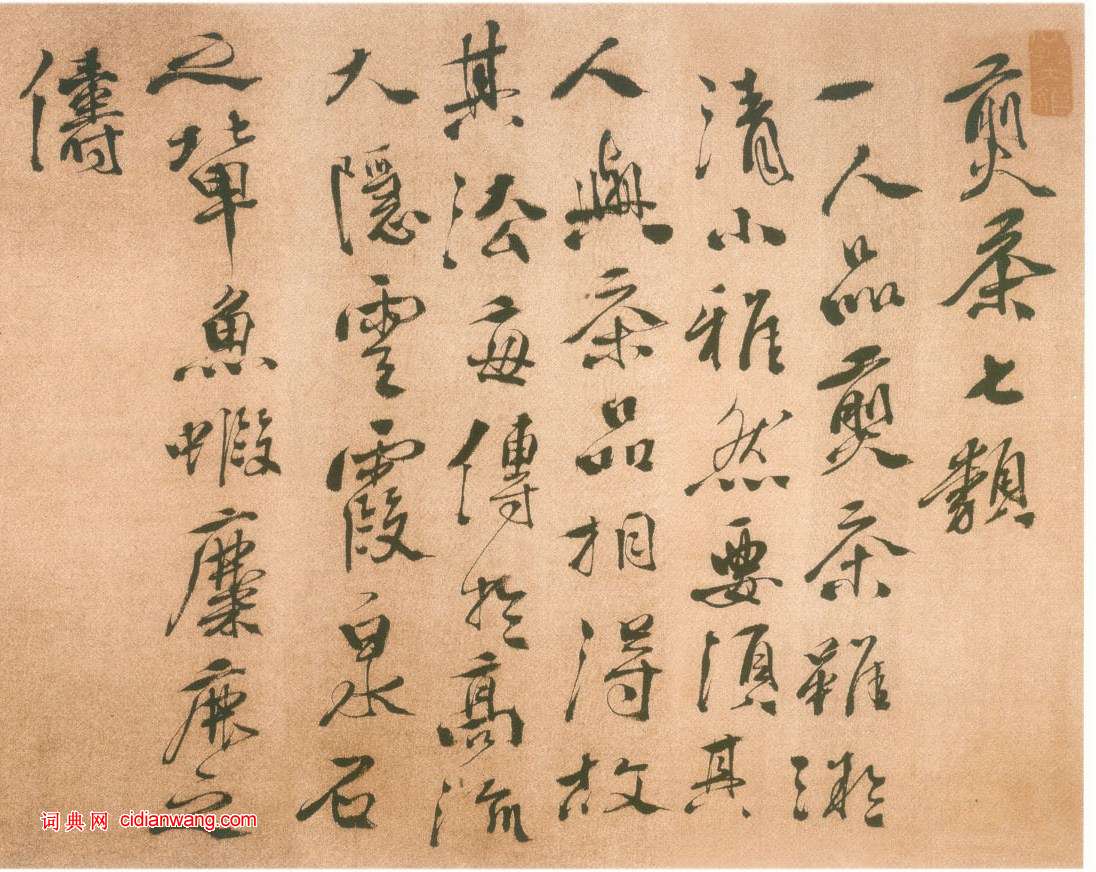 煎茶七類
一人品煎茶雖漸
清小雅然要須其
人與茶品相得故
其法每傳於高流
大隱雲霞泉石
之輩魚蝦麋鹿之
儔
词典网 cidianwang.com